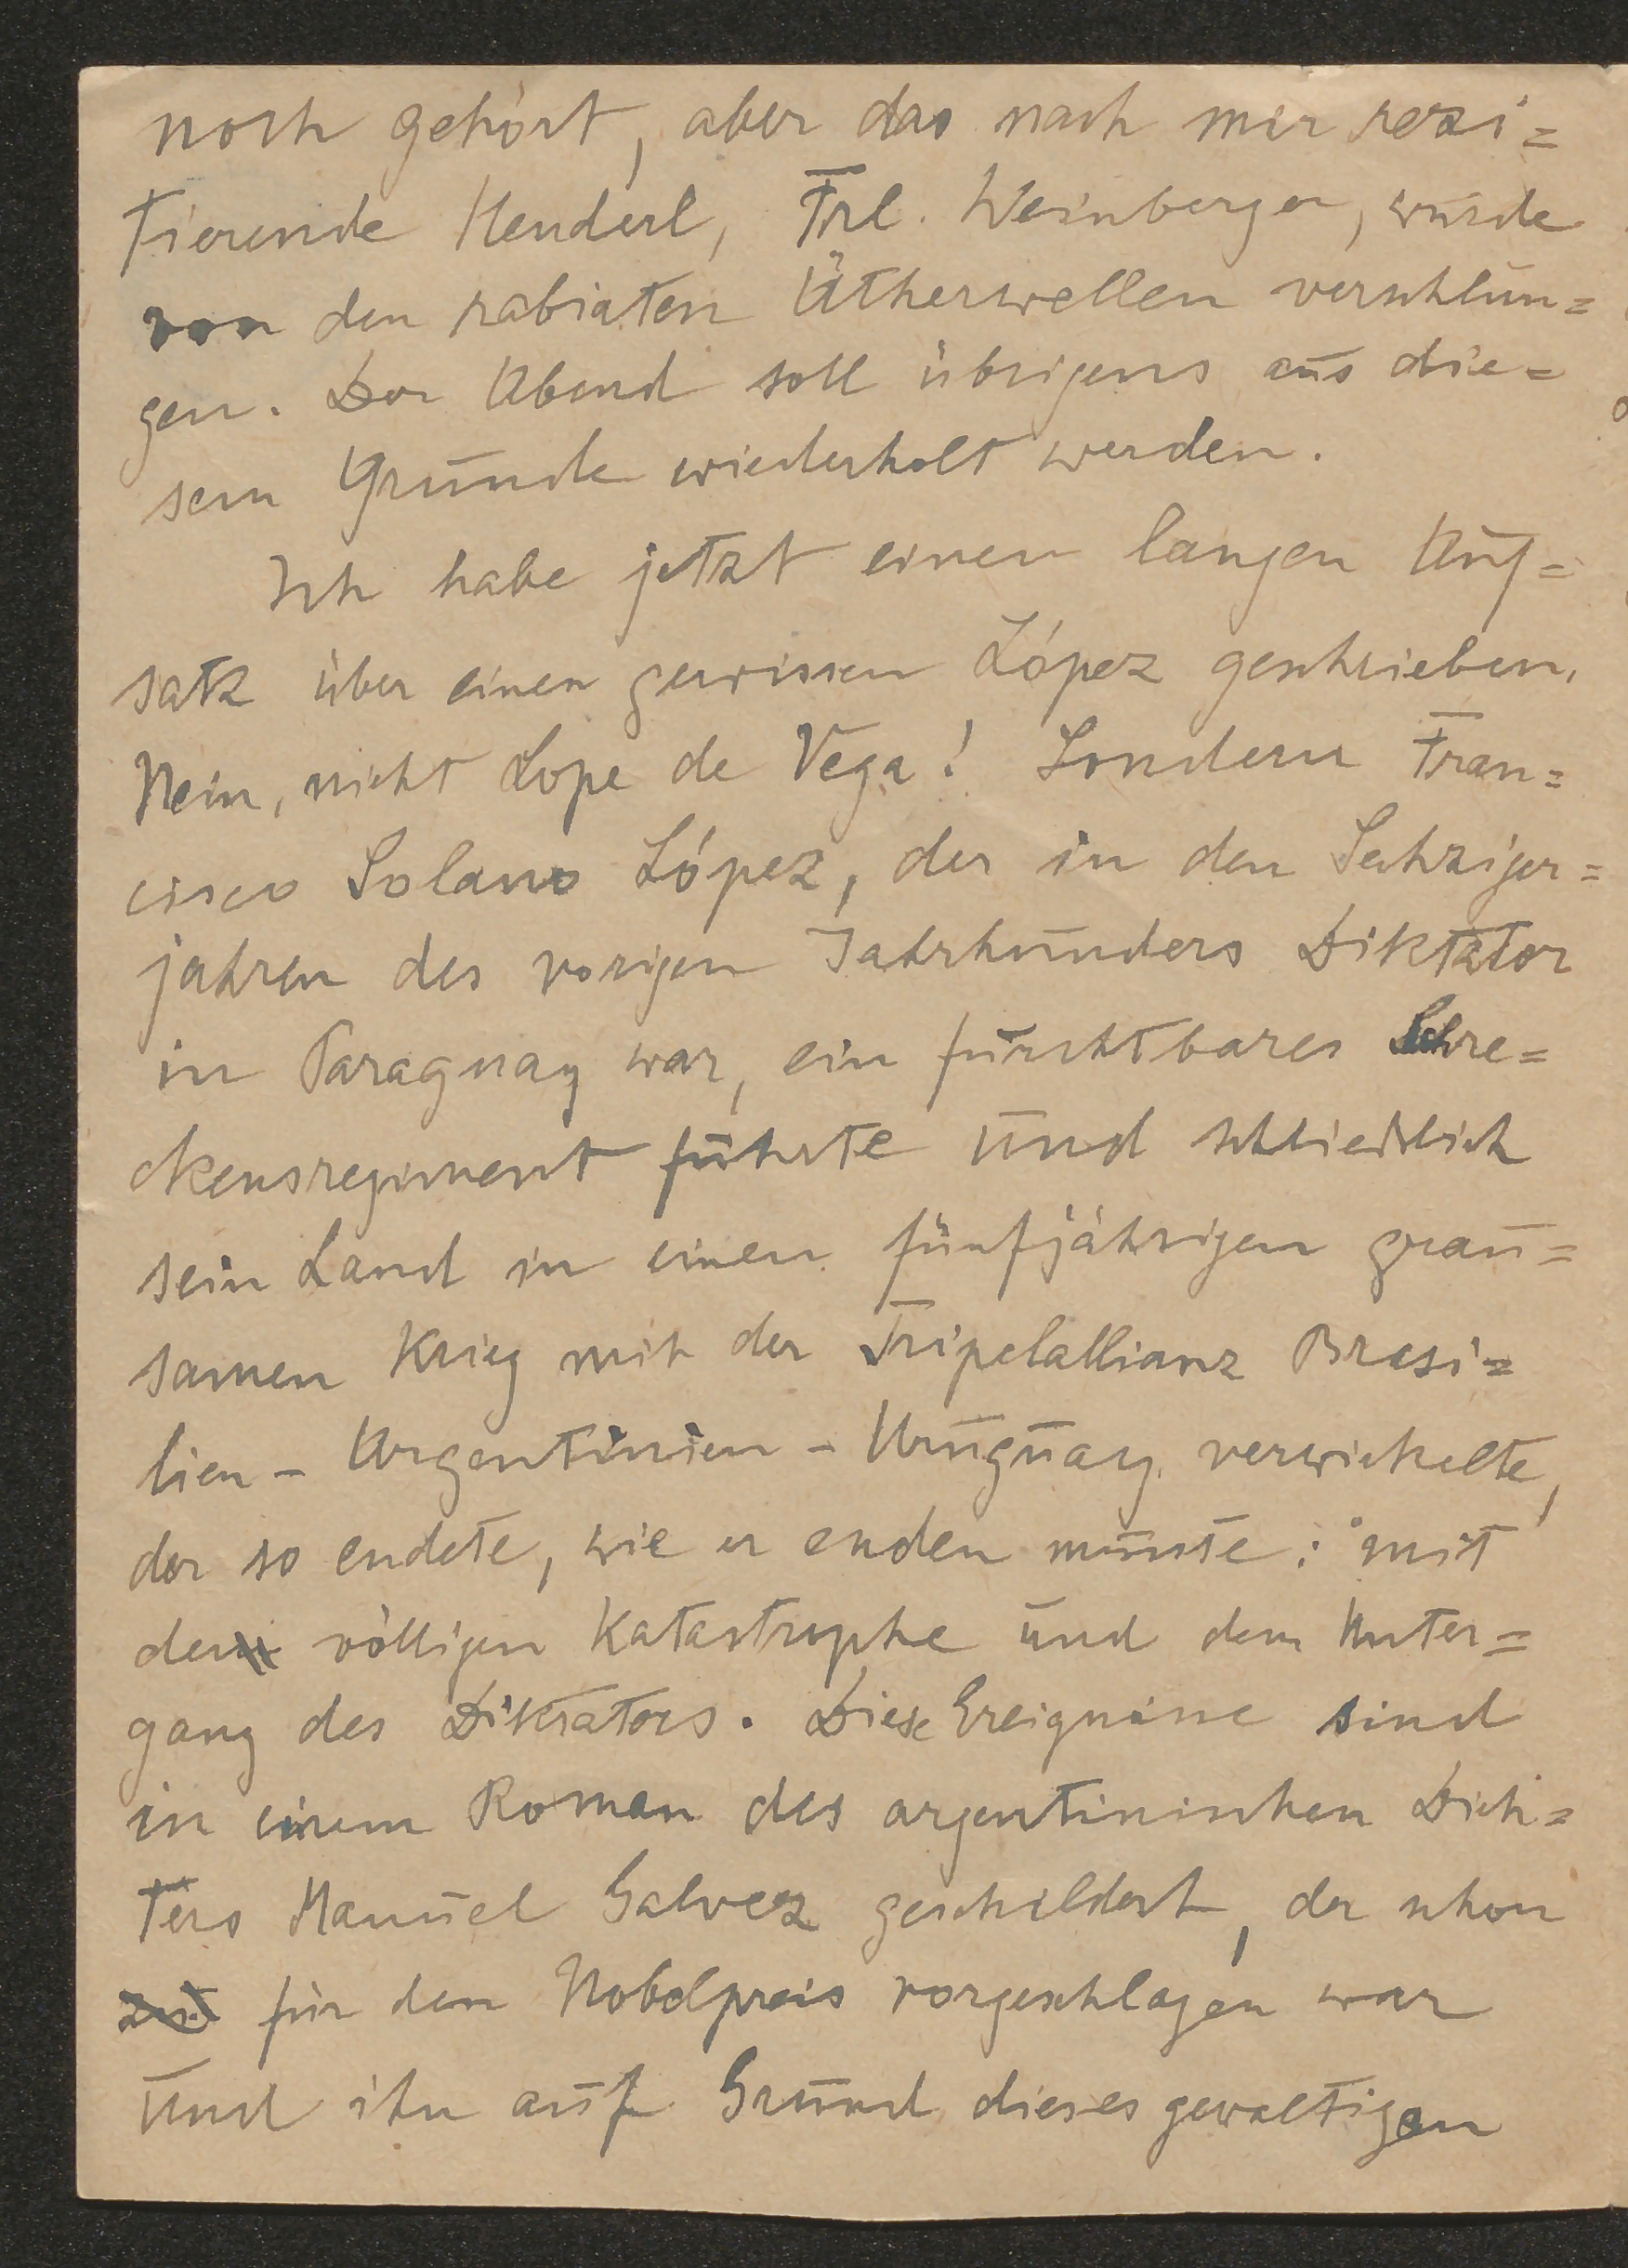 noch gehört, aber das nach mir rezi=
tierende Henderl, Frl. Weinberger, wurde
von den rabiaten Ätherwellen verschlun=
gen. Der Abend soll übrigens aus die=
sem Grunde wiederholt werden.
Ich habe jetzt einen langen Auf=
satz über einen gewissen López geschrieben.
Nein, nicht Lope de Vega! Sondern Fran=
cisco Solano López, der in den Sechziger=
jahren des vorigen Jahrhunders Diktator
in Paraguay war, ein furchtbares Schre=
ckensregiment führte und schließlich
sein Land in einen fünfjährigen grau=
samen Krieg mit der Tripelallianz Brasi=
lien - Argentinien - Uruguay verwickelte,
der so endete, wie er enden musste: mit
der völligen Katastrophe und dem Unter=
gang des Diktators. Diese Ereignisse sind
in einem Roman des argentinischen Dich=
ters Manuel Galvez geschildert, der schon
für den Nobelpreis vorgeschlagen war
und ihn auf Grund dieses gewaltigen